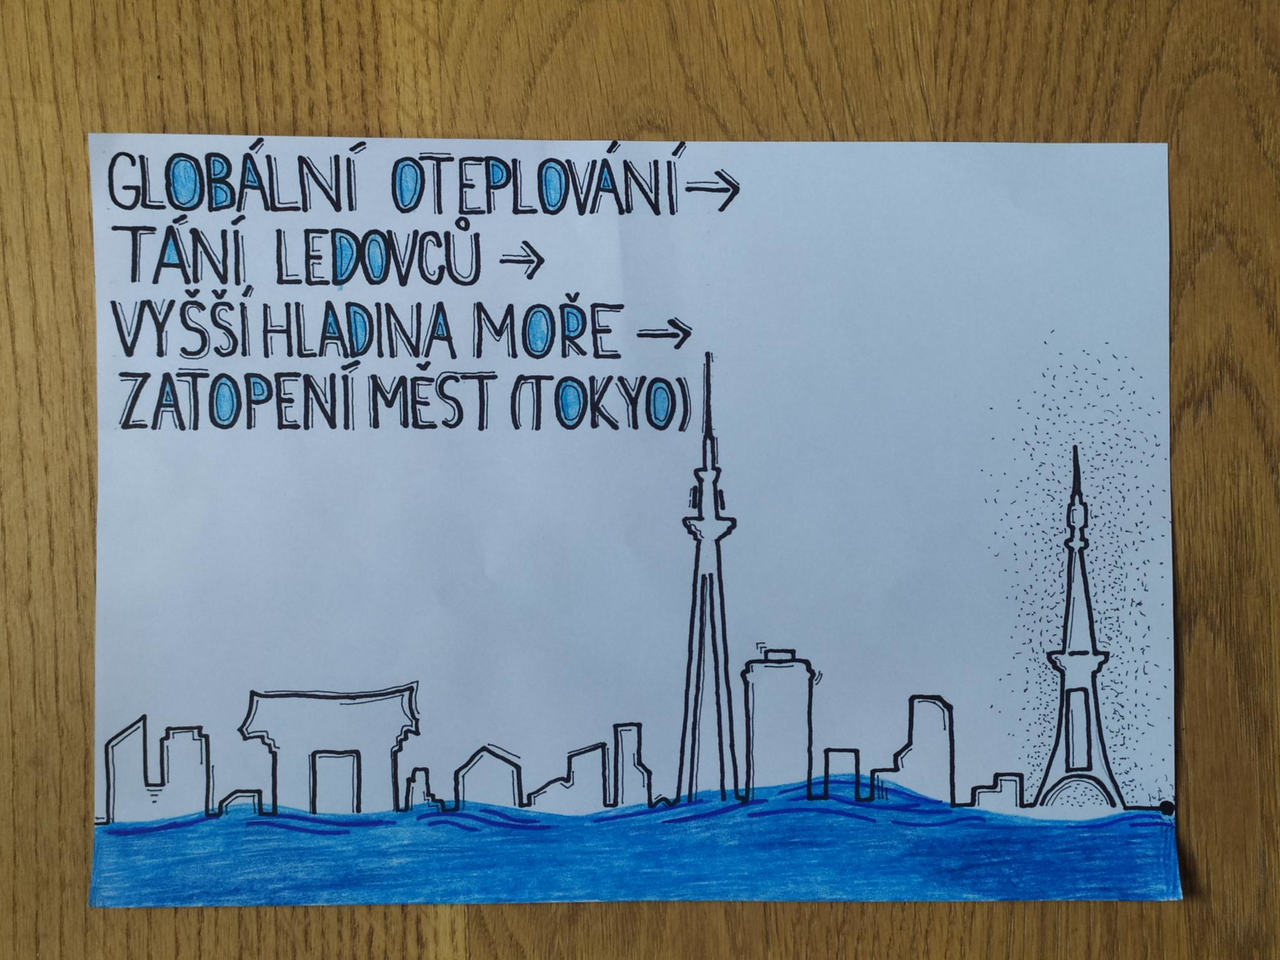 GLOBÁLNÍ OTEPLOVÁNÍ →
TÁNÍ LEDOVCŮ →
VYŠŠÍ HLADINA MOŘE →
ZATOPENÍ MĚST (TOKYO)